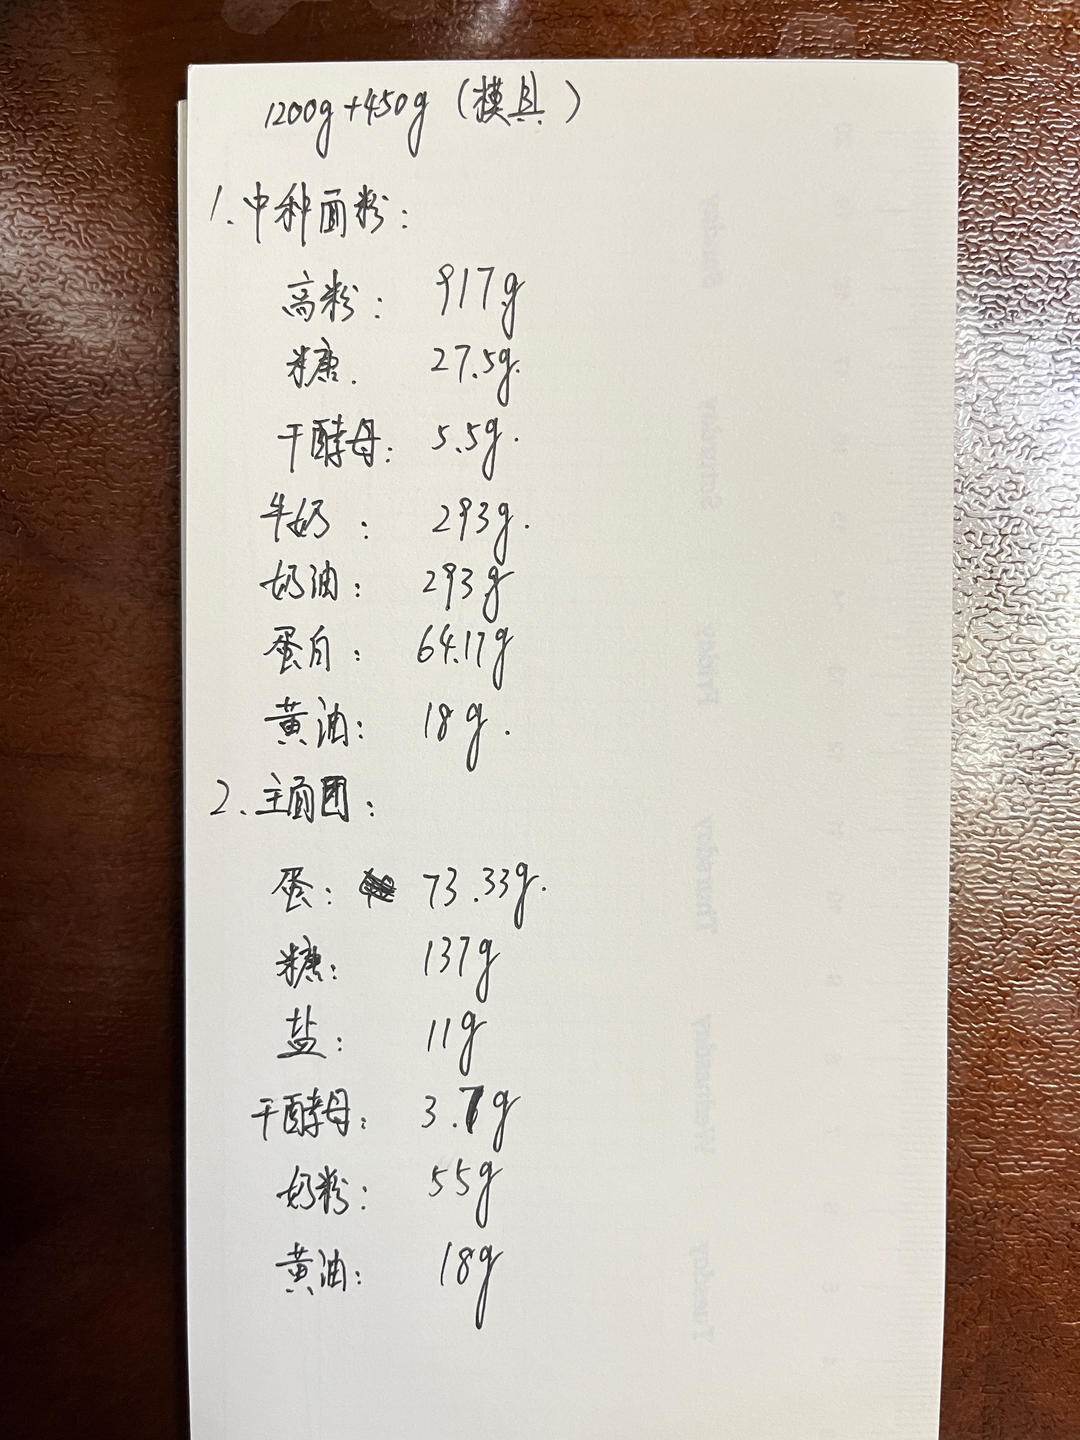 1200g+450g（模具）
1.中种面粉：
高粉：917g
糖.27.5g.
干酵母：5.5g.
牛奶：293g.
奶油：293g
蛋白：64.17g
黄油：18g.
2.主面团：
蛋：73.33g.
糖：137g
盐：11g
干酵母：3.7g
奶粉：55g
黄油：18g
Tuesday
Wednesday
Thursday
Friday
Saturday
Sunday